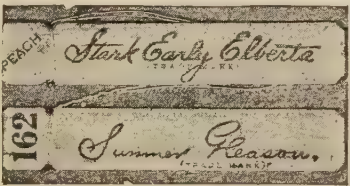 PEACH
Stark Early Elberta
TRADE MARK
162
Summer Gleason.
(TRADE MARK)